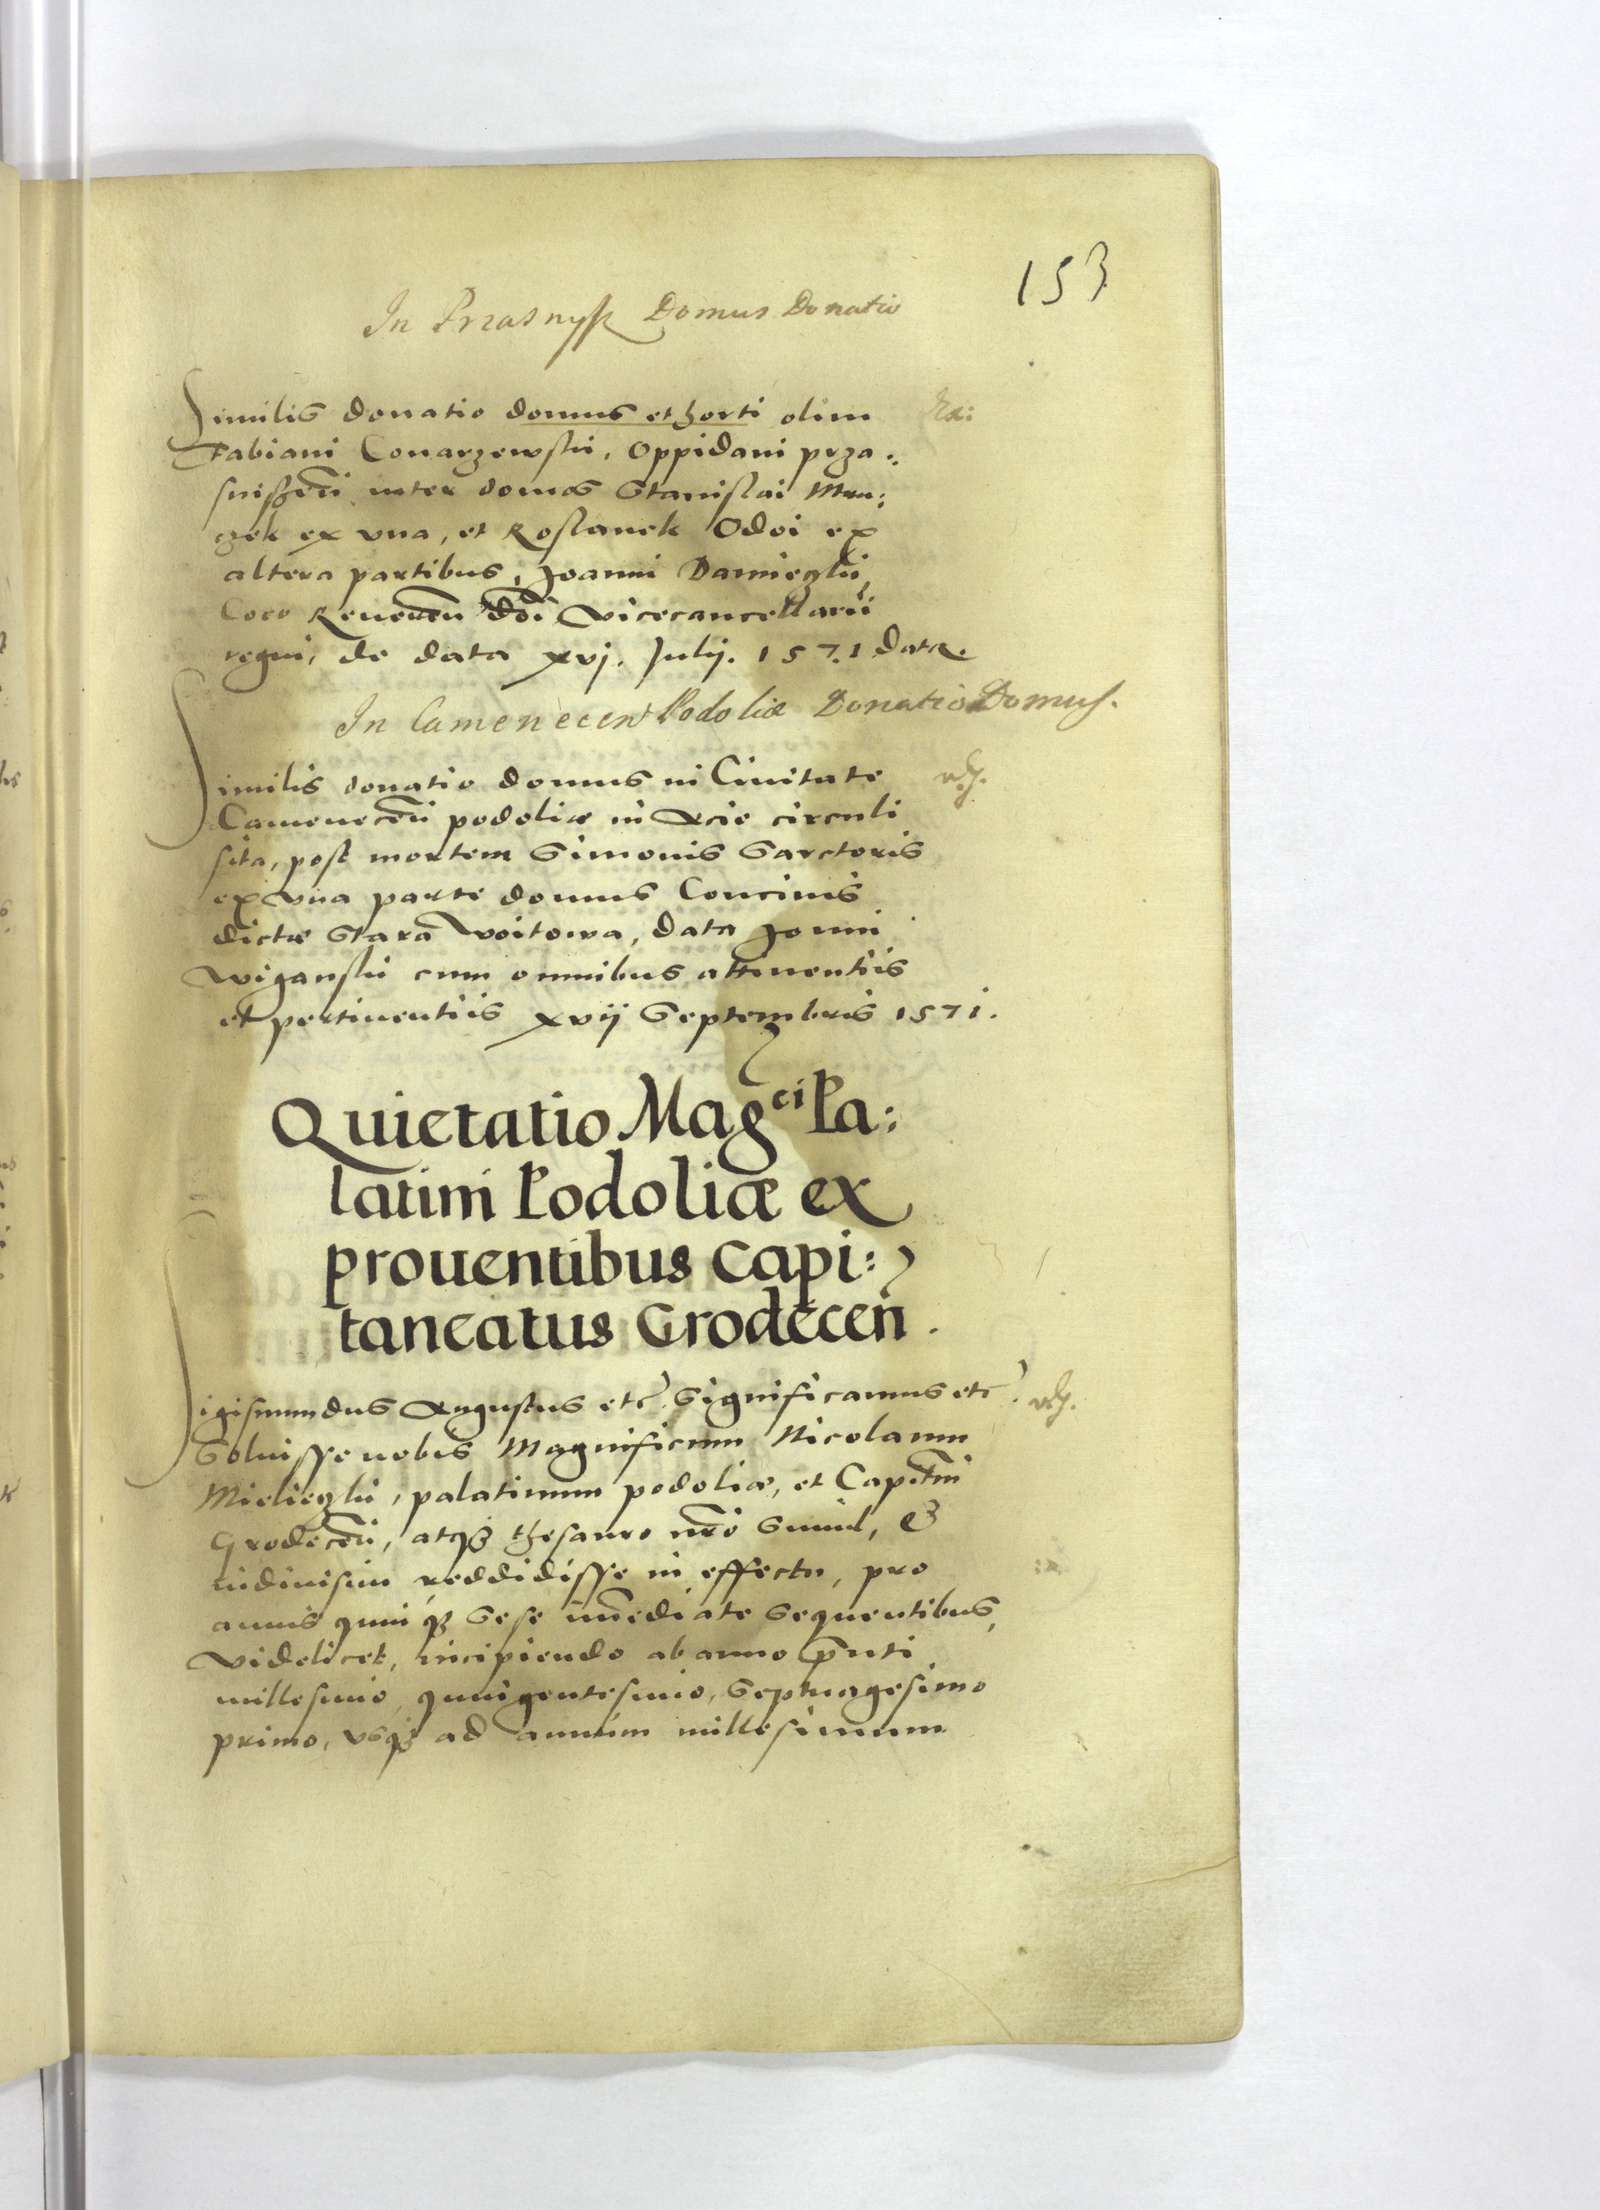 153
In Przasnysz Domus Donatio
Similis donatio domus et horti olim
Fabiani Conarzewski, Oppidani prza:
snissẽn inter domos Stanislai Mru:
gek ex vna, et Roslanek Odoi ex
altera partibus, Joanni Danieglii,
Coco Reuerẽn dõi Vicecancellarii
regni, de data xvj. Julij. 1571 data.
In Camenecen Podoliæ Donatio Domus.
Similis donatio domus in Ciuitate
Camenecẽn podoliæ in Acie circuli
sita, post mortem Simonis Sarctoris
ex vna parte domus Conciuis
dictæ Stara Woitowa, data Joanni
Wiganski cum omnibus attinentiis
et pertinentiis xvij Septembris 1571.
Quietatio Magci Pa:
latini Podoliæ ex
prouentibus Capi:
taneatus Grodecen̄.
Sigismundus Augustus etc. Significamus etc.
Soluisse nobis Magnificum Nicolaum
Mielieglii, palatinum podoliæ, et Capitn̄
Grodecẽn, atqȝ thesauro nr̃o Simul, &
indiuisim reddidisse in effectu, pro
annis quinqȝ Sese im̃ediate Sequentibus,
Videlicet, incipiendo ab anno p̃nti
millesimo quingentesimo, Septuagesimo
primo, vsqȝ ad annum millesimum